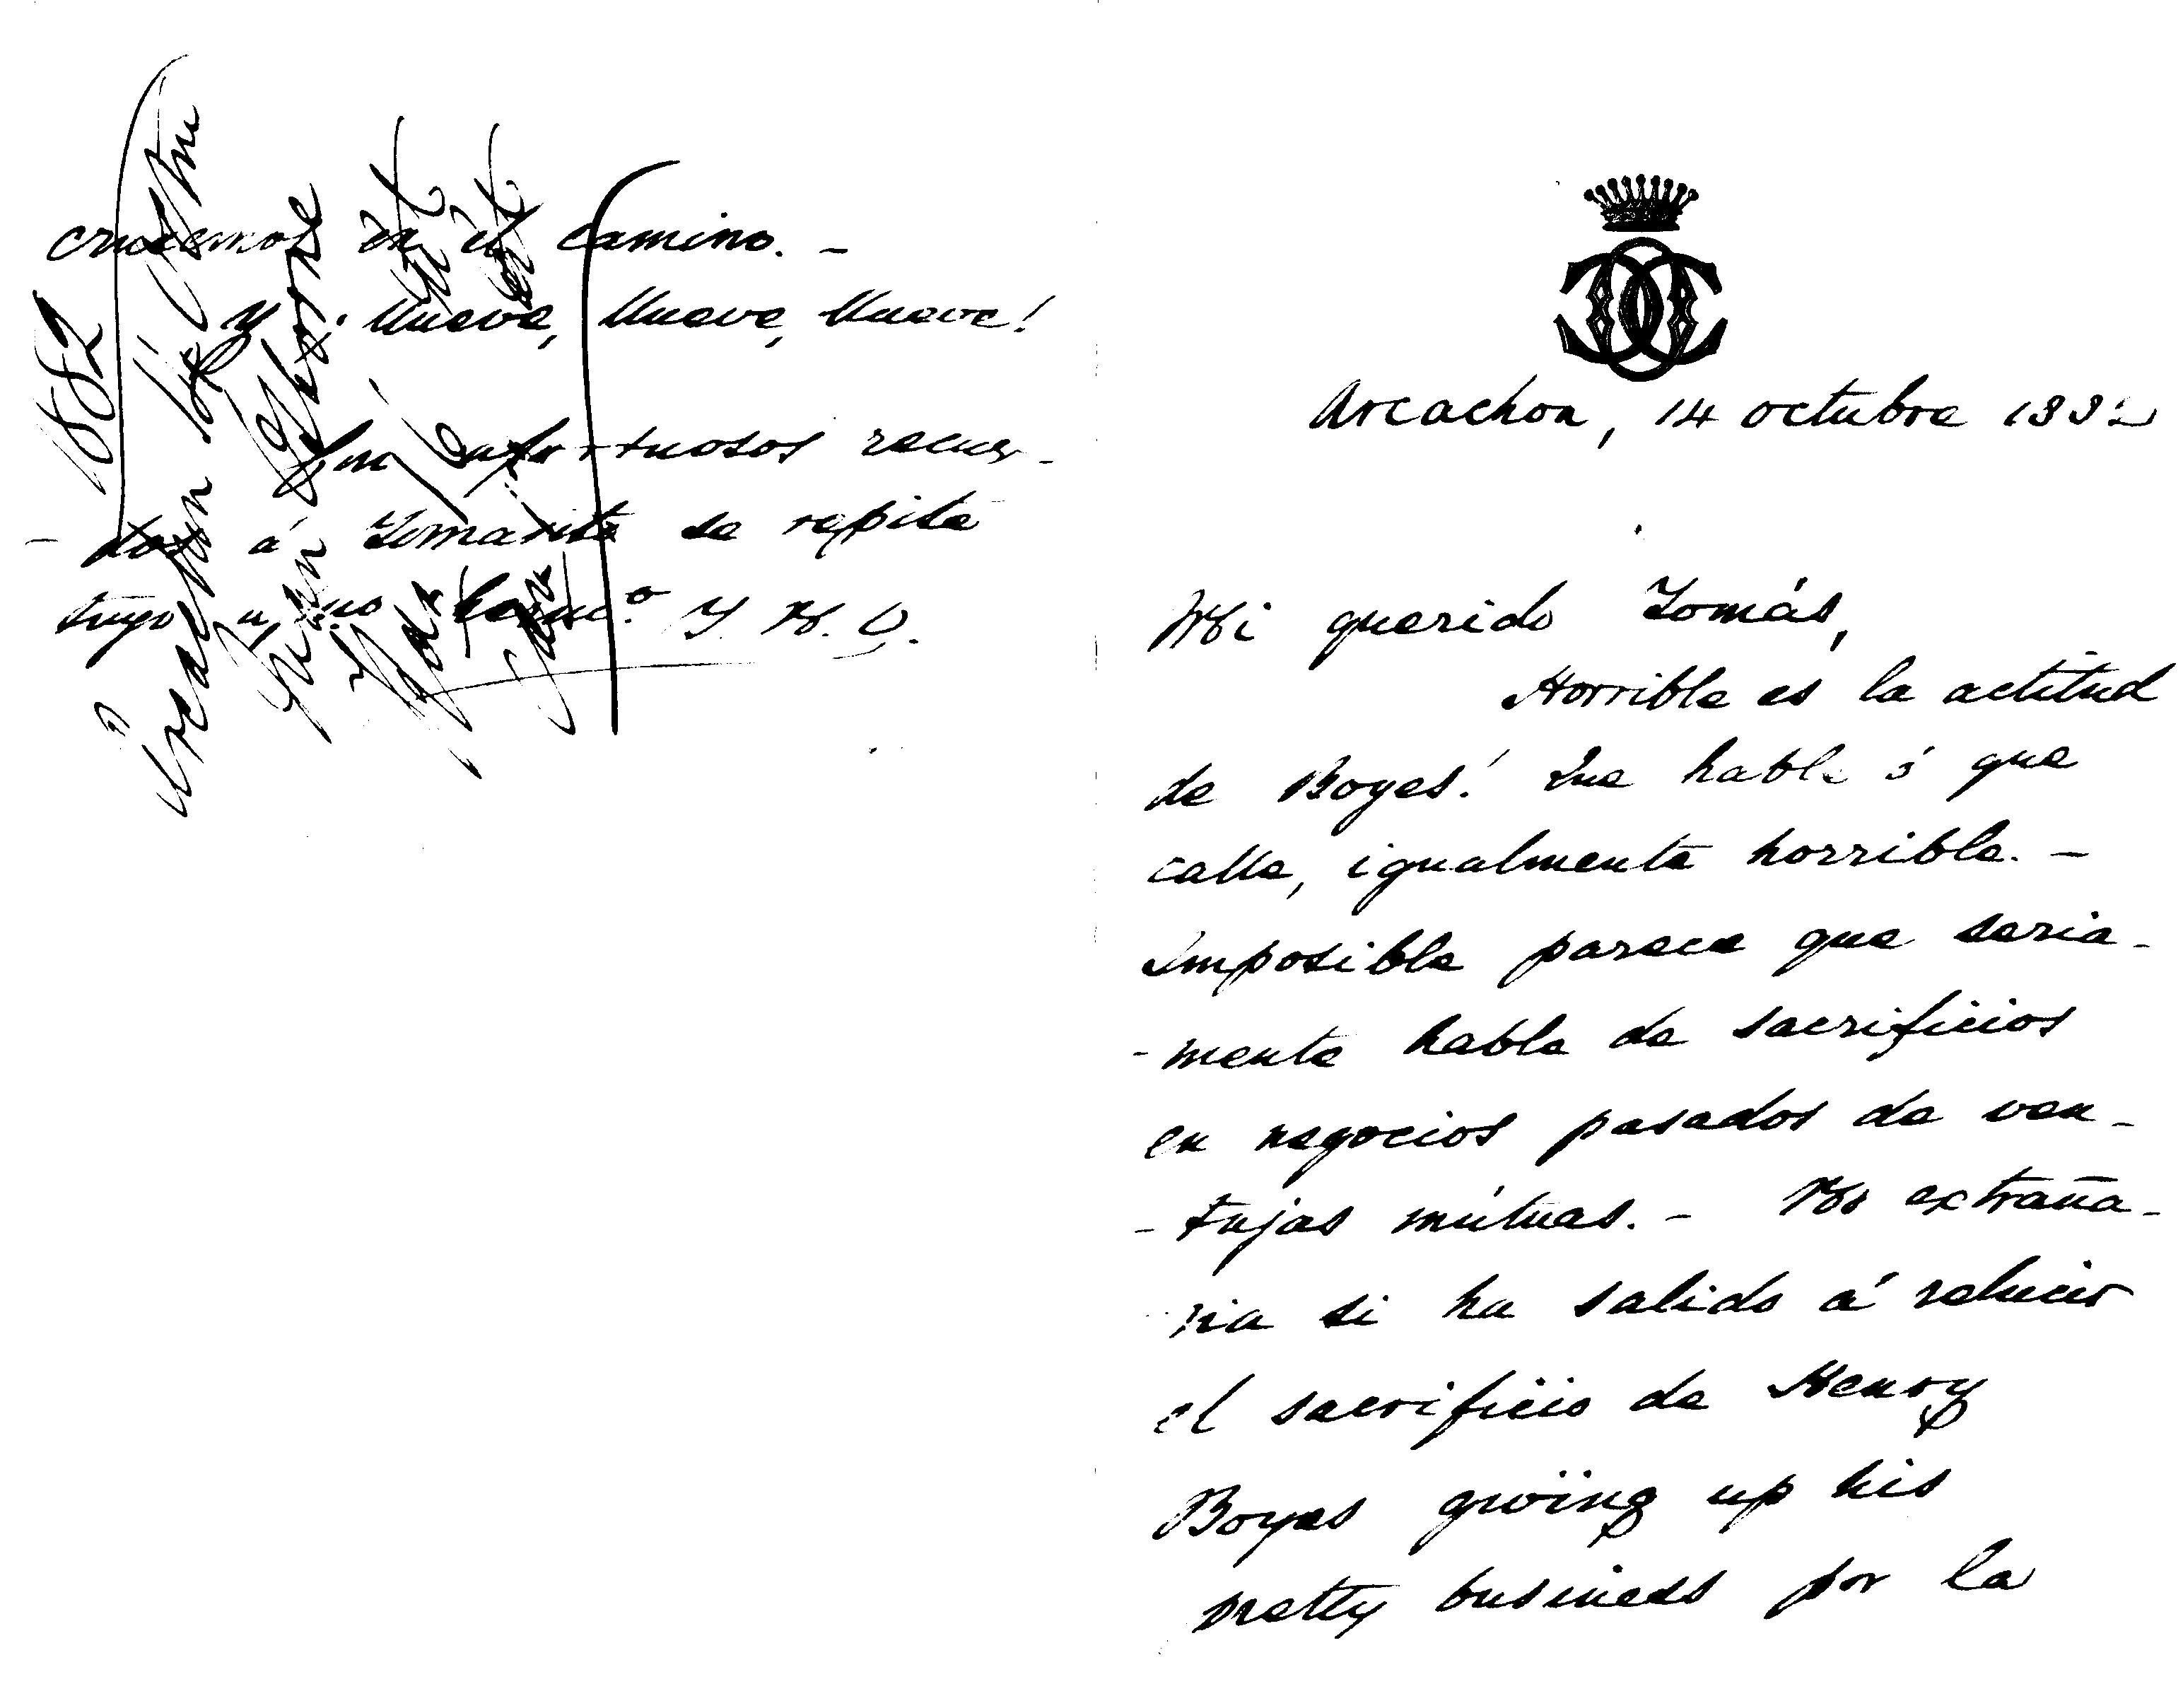 crucemos en el camino. –
Y: Llueve, Llueve, Llueve!
afectuosos recuer-
- dos á Tomasito se repite
tuyo
1882
Arcachon 14
Arcachon, 14 octubre 1882
Mi querido Tomás,
Horrible es la actitud
de Boyes! Que hable ó que
calle, igualmente horrible. –
Imposible parece que seria-
- mente hable de sacrificios
en negocios pasados de ven-
- tajas mútuas. – No extraña-
ria si ha salido á relucir
el sacrificio de Henry
Boyes giving up his
pretty business por la